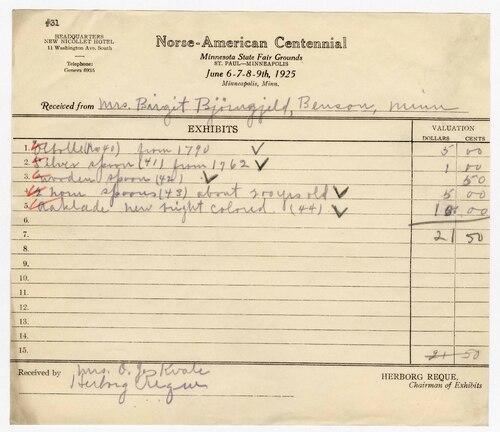 #31
HEADQUARTERS
NEW NICOLLET HOTEL
11 Washington Ave. South
Telephone:
Geneva 6935
Norse-American Centennial
Minnesota State Fair Grounds
ST. PAUL—MINNEAPOLIS
June 6-7-8-9th, 1925
Minneapolis, Minn.
Received from Mrs. Birgit Bjöngjeld, Benson, Minn
EXHIBITS
VALUATION
DOLLARS CENTS
1. (No 40) from 1790 5 00
2. Silver spoon (41) from 1762 1 00
3. wooden spoon (42) 50
4. 2 horn spoons (43) about 200 yrs old 5 00
5. Aaklade new bright colored (44) 10 00
6.
7. 21 50
8.
9.
10.
11.
12.
13.
14.
15. 21 50
Received by Mrs. O. J. Kvale
Herborg Reque
HERBORG REQUE,
Chairman of Exhibits